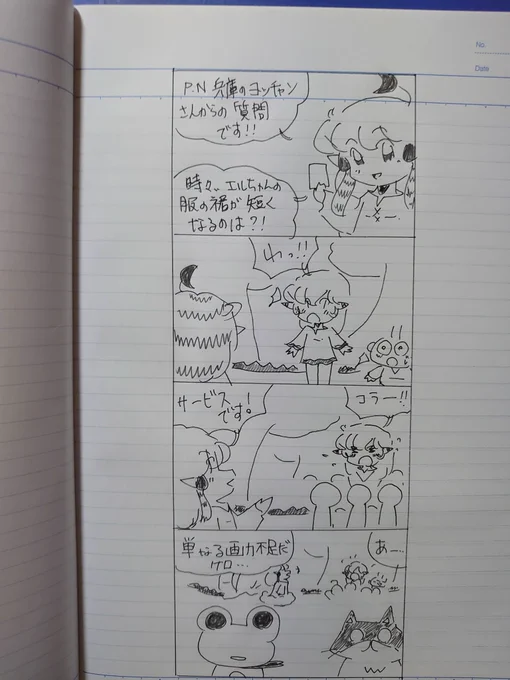 No.
Date
P.N 兵庫のヨッチャン
さんからの質問
です!!
時々、エルちゃんの
服の裾が短く
なるのは?!
わっ!!
!!
サービス
です!
コラー!!
単なる画力不足だ
ケロ…
あー…